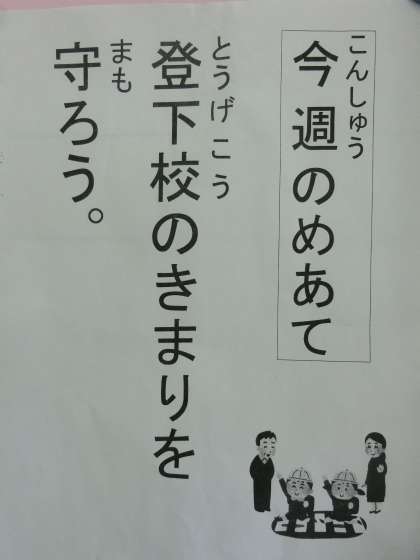 こんしゅう
今週のめあて
とうげこう
登下校のきまりを
まも
守ろう。